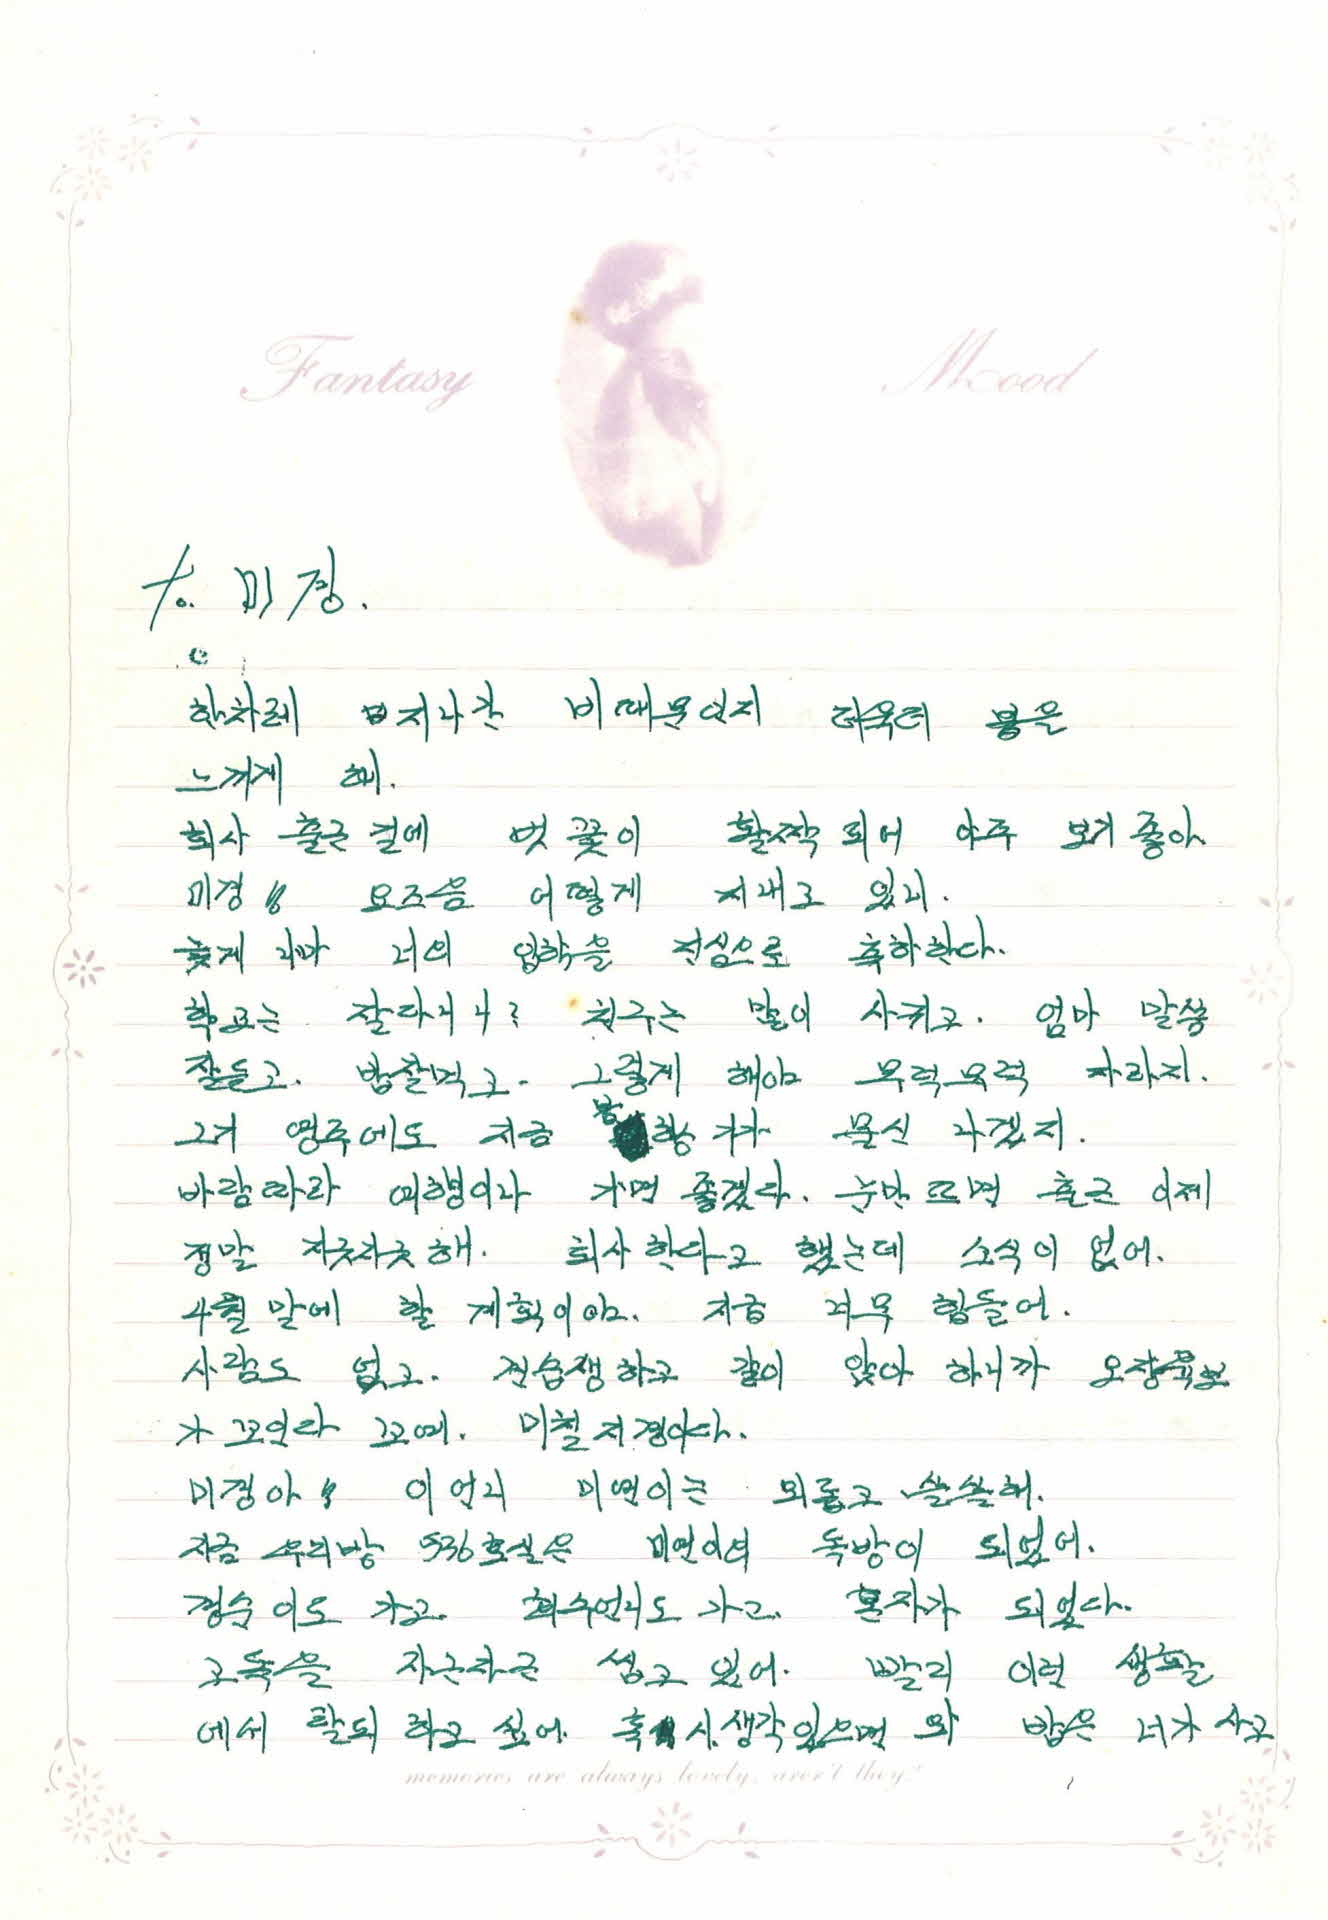 Fantasy Mood
to. 미경.
한차레 지나간 비때문인지 더욱더 봄을
느끼게 해.
회사 출근 길에 벗꽃이 활짝 되어 아주 보기 좋아
미경!! 요즈음 어떻게 지내고 있니.
늦게 나마 너의 입학을 진심으로 축하한다.
학교는 잘다니니? 친구는 많이 사귀고. 엄마 말씀
잘듣고. 밥잘먹고. 그렇게 해야 무럭무럭 자라지.
그기 영주에도 지금 봄향기가 물신 나겠지.
바람따라 여행이나 가면 좋겠다. 눈만 뜨면 출근 이제
정말 지긋지긋해. 회사 한다고 했는데 소식이 없어.
4월 말에 할 계획이야. 지금 너무 힘들어.
사람도 없고. 견습생하고 같이 앉아 하니까 오장육보
가 꼬인다 꼬여. 미칠 지경이다.
미경아!! 이 언니 미연이는 외롭고 쓸쓸해.
지금 우리방 536호실은 미연이의 독방이 되었어.
경숙이도 가고. 희수언니도 가고. 혼자가 되었다.
고독을 자근자근 씹고 있어. 빨리 이런 생활
에서 탈되 하고 싶어. 혹시.생각있으면 와 밥은 너가 사고
memories are always lovely, aren't they?